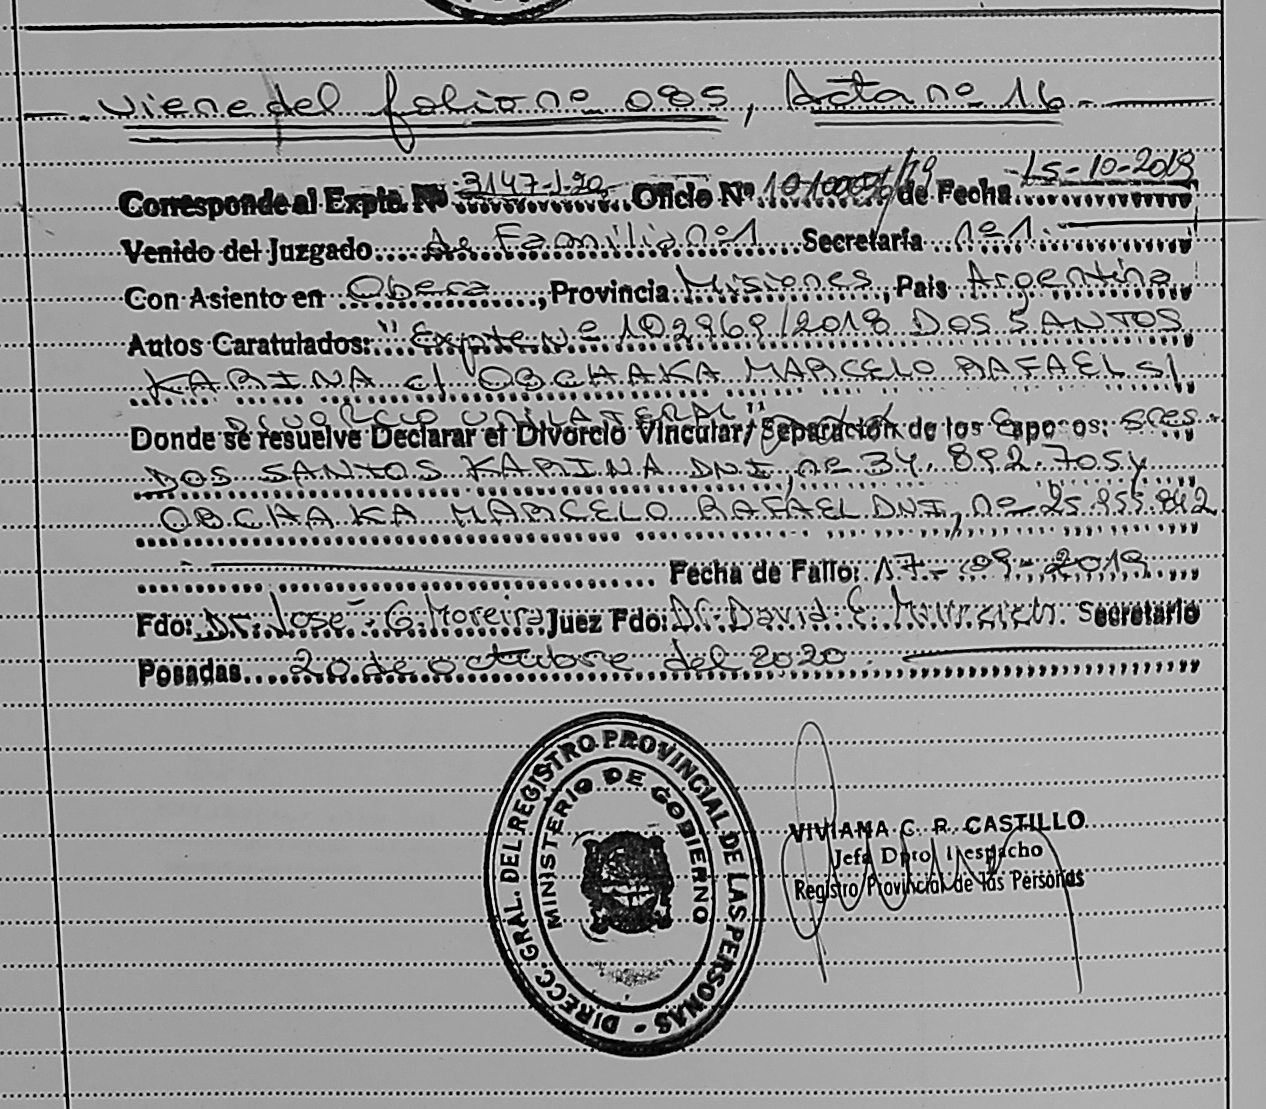 viene del folio nº 085, Acta nº 16.
Corresponde al Expte. Nº 3147-J-20 Oficio Nº de Fecha 15-10-2019
Venido del Juzgado de Familia nº1 Secretaría nº1.
Con Asiento en Oberá, Provincia Misiones, País Argentina
Autos Caratulados: "Expte Nº 102969/2018 DOS SANTOS
KARINA c/ OBCHAKA MARCELO RAFAEL s/
DIVORCIO UNILATERAL"
Donde se resuelve Declarar el Divorcio Vincular/ Separación de los Esposos: sres.
DOS SANTOS KARINA DNI, nº 34.892.705 y
OBCHAKA MARCELO RAFAEL DNI, nº 25.955.842
Fecha de Fallo: 17-09-2019
Fdo: Dr. José G. Moreira Juez Fdo: Dr. David E. Secretario
Posadas 20 de octubre del 2020.
DIRECC. GRAL. DEL REGISTRO PROVINCIAL DE LAS PERSONAS -
MINISTERIO DE GOBIERNO
VIVIANA C. R. CASTILLO
Jefa Dpto. Despacho
Registro Provincial de las Personas